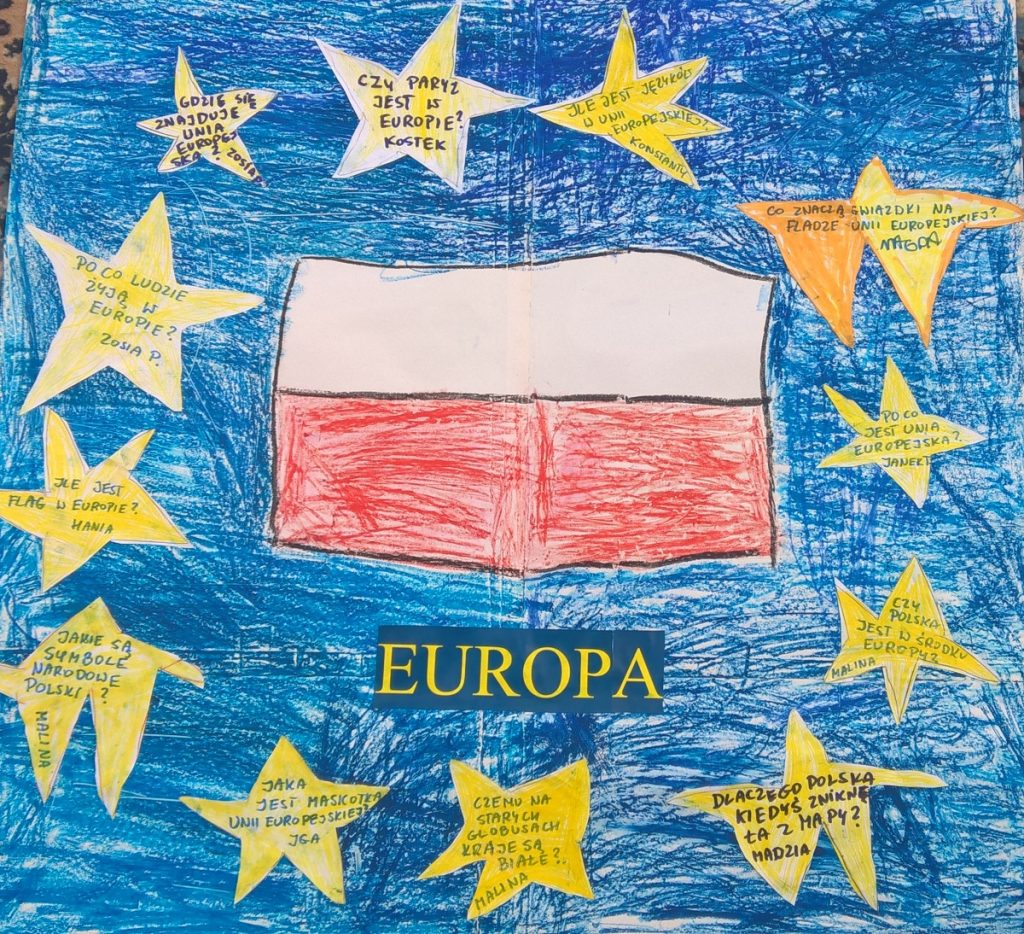 GDZIE SIĘ
ZNAJDUJE
UNIA
EUROPEJ
SKA? ZOSIA
CZY PARYŻ
JEST W
EUROPIE?
KOSTEK
ILE JEST JĘZYKÓW
W UNII
EUROPEJSKIEJ?
KONSTANTY
CO ZNACZĄ GWIAZDKI NA
FLADZE UNII EUROPEJSKIEJ?
MAGDA
PO CO LUDZIE
ŻYJĄ W
EUROPIE?
ZOSIA P.
PO CO
JEST UNIA
EUROPEJSKA?
JANEK
ILE JEST
FLAG W EUROPIE?
HANIA
CZY
POLSKA
JEST W ŚRODKU
EUROPY?
MALINA
JAKIE SĄ
SYMBOLE
NARODOWE
POLSKI?
MALINA
EUROPA
JAKA
JEST MASKOTKA
UNII EUROPEJSKIEJ?
IGA
CZEMU NA
STARYCH
GLOBUSACH
KRAJE SĄ
BIAŁE?
MALINA
DLACZEGO POLSKA
KIEDYŚ ZNIKNĘ
ŁA Z MAPY?
MADZIA